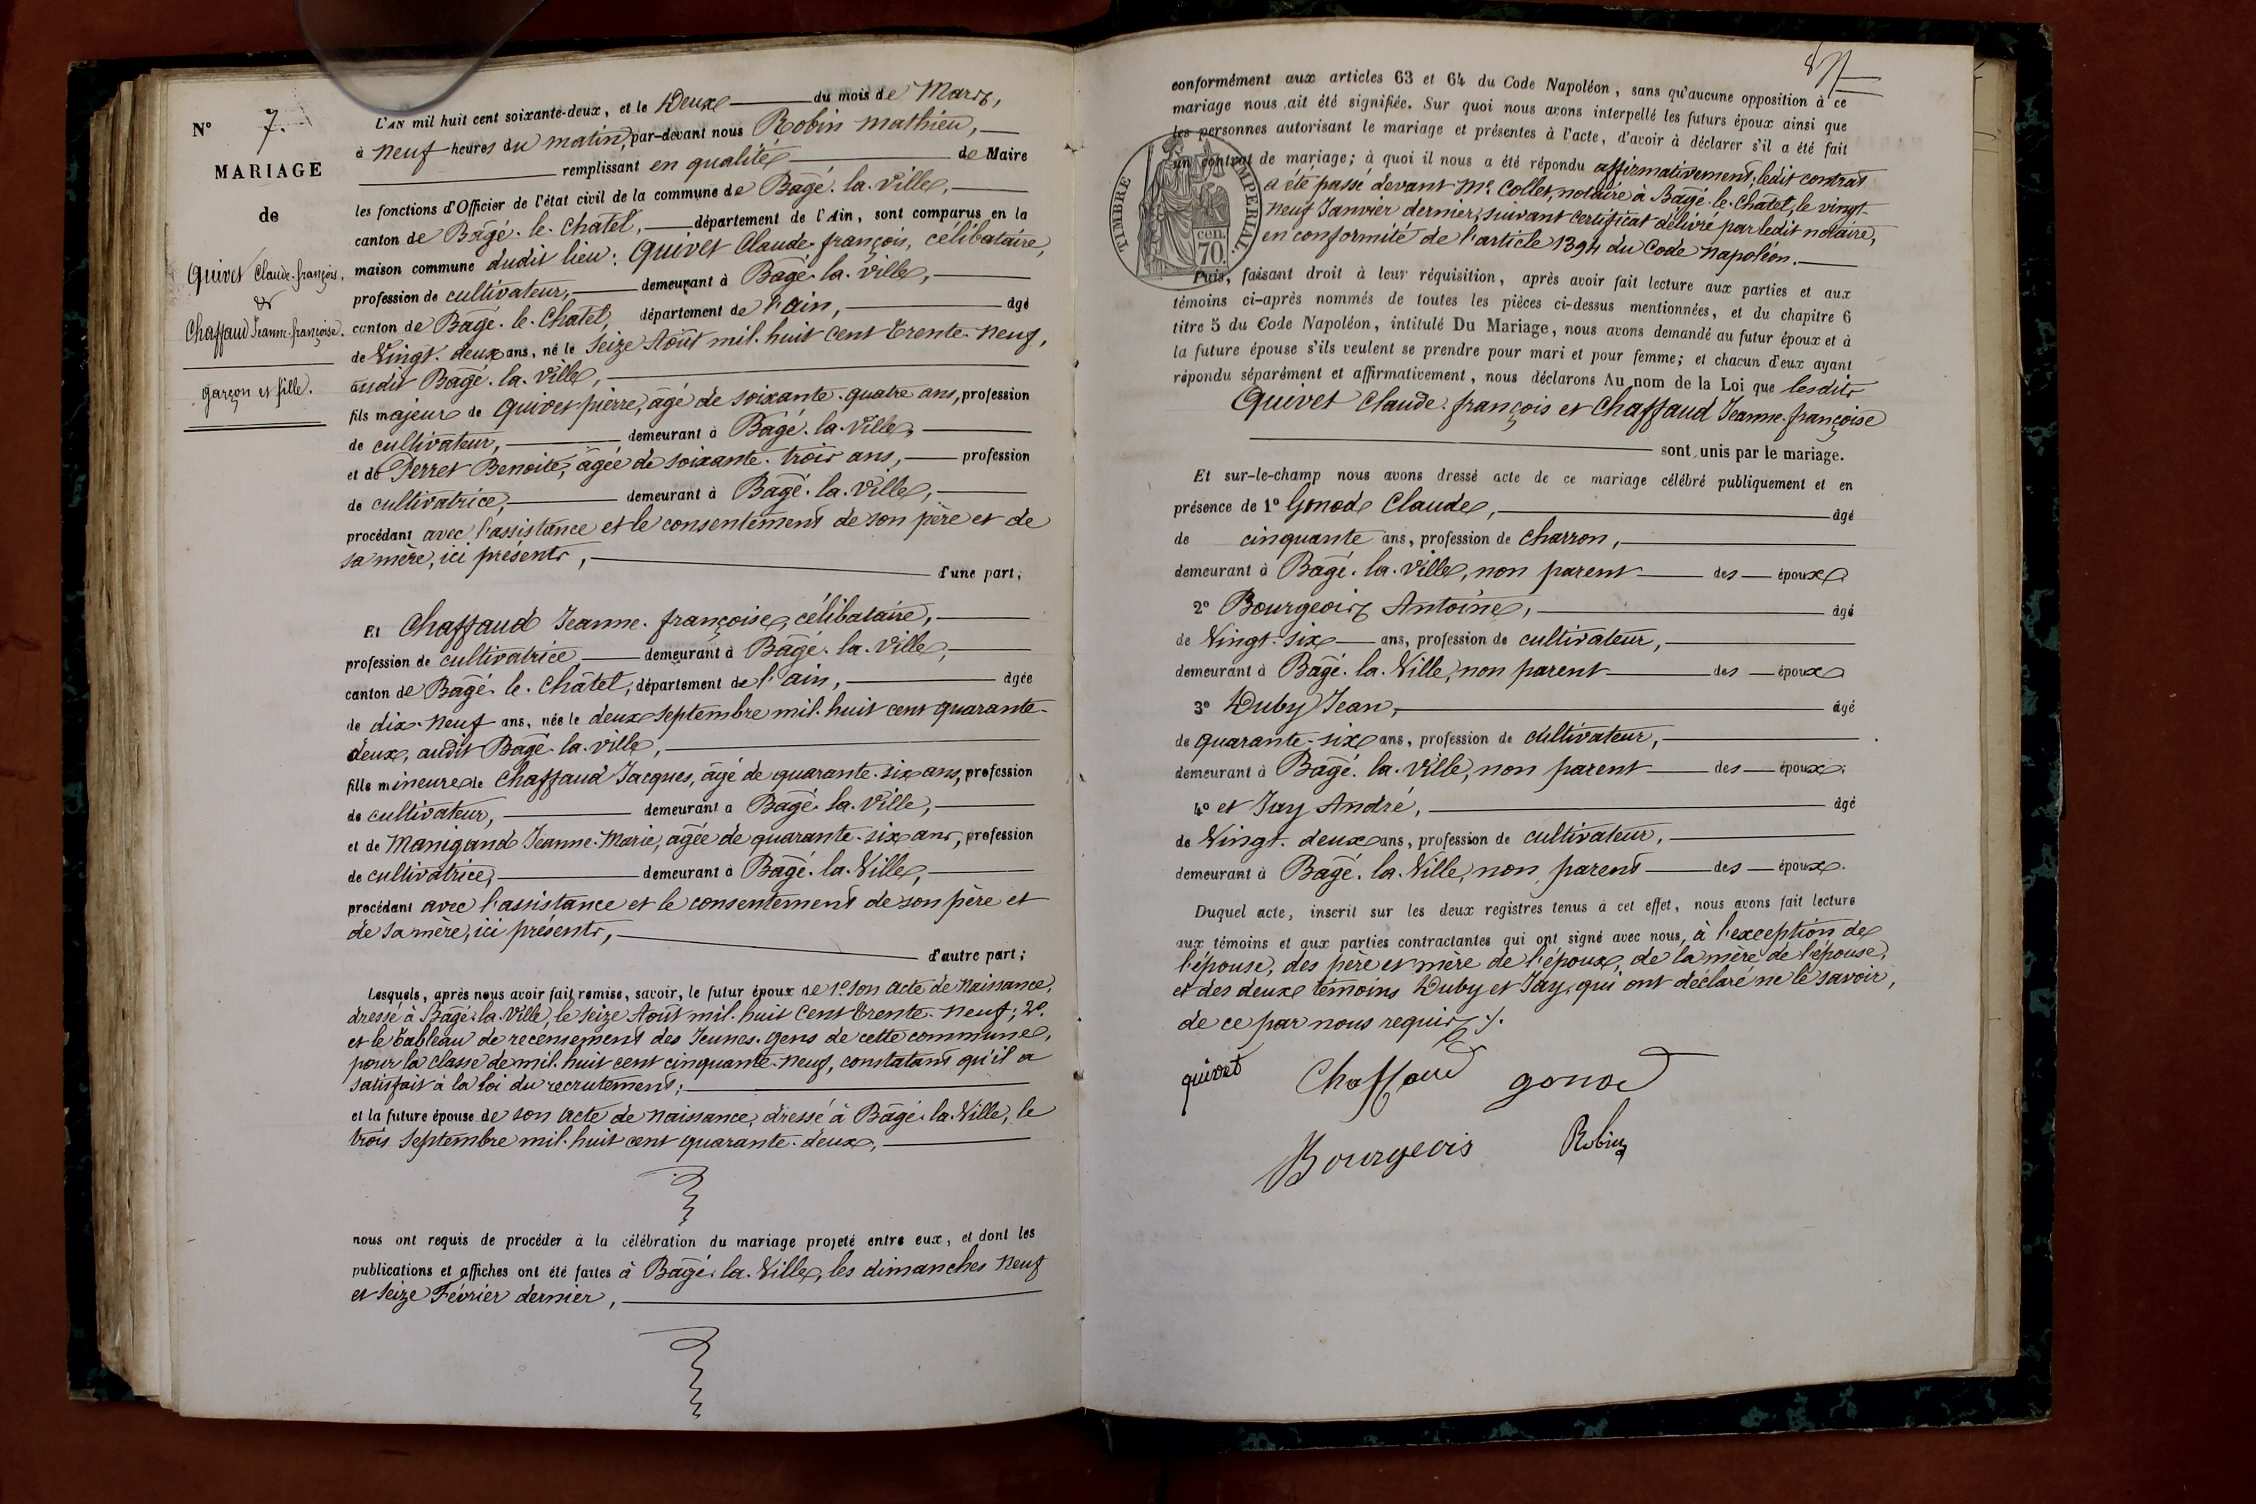 N° 7.
MARIAGE
de
Quivet Claude-françois,
&
Chaffaud Jeanne-françoise.
garçon et fille.
L'AN mil huit cent soixante-deux, et le Deux du mois de Mars,
à neuf heures du matin, par-devant nous Robin Mathieu,
remplissant en qualité de Maire
les fonctions d'Officier de l'état civil de la commune de Bâgé-la-Ville,
canton de Bâgé-le-Châtel, département de l'Ain, sont comparus en la
maison commune dudit lieu: Quivet Claude-françois, célibataire,
profession de cultivateur, demeurant à Bâgé-la-Ville,
canton de Bâgé-le-Châtel, département de l'ain, âgé
de Vingt-deux ans, né le Seize Août mil-huit cent trente-neuf,
audit Bâgé-la-Ville,
fils majeur de Quivet pierre, âgé de soixante-quatre ans, profession
de cultivateur, demeurant à Bâgé-la-Ville,
et de Ferret Benoite, âgée de soixante-trois ans, profession
de cultivatrice, demeurant à Bâgé-la-Ville,
procédant avec l'assistance et le consentement de son père et de
sa mère, ici présents, d'une part;
Et Chaffaud Jeanne-françoise, célibataire,
profession de cultivatrice demeurant à Bâgé-la-Ville,
canton de Bâgé-le-Châtel, département de l'ain, âgée
de dix-neuf ans, née le deux septembre mil-huit cent quarante-
deux, audit Bâgé-la-Ville,
fille mineure de Chaffaud Jacques, âgé de quarante-six ans, profession
de cultivateur, demeurant à Bâgé-la-Ville,
et de Manigand Jeanne-Marie, âgée de quarante-six ans, profession
de cultivatrice, demeurant à Bâgé-la-Ville,
procédant avec l'assistance et le consentement de son père et
de sa mère, ici présents, d'autre part;
Lesquels, après nous avoir fait remise, savoir, le futur époux de 1° son acte de Naissance,
dressé à Bâgé-la-Ville, le seize Août mil-huit cent trente-neuf; 2°
et le tableau de recensement des Jeunes-gens de cette commune,
pour la classe de mil-huit cent cinquante-neuf, constatant qu'il a
satisfait à la loi du recrutement;
et la future épouse de son acte de naissance, dressé à Bâgé-la-Ville, le
trois septembre mil-huit cent quarante-deux,
nous ont requis de procéder à la célébration du mariage projeté entre eux, et dont les
publications et affiches ont été faites à Bâgé-la-Ville, les dimanches neuf
et seize Février dernier,
conformément aux articles 63 et 64 du Code Napoléon, sans qu'aucune opposition à ce
mariage nous ait été signifiée. Sur quoi nous avons interpellé les futurs époux ainsi que
les personnes autorisant le mariage et présentes à l'acte, d'avoir à déclarer s'il a été fait
un contrat de mariage; à quoi il nous a été répondu affirmativement; ledit contrat
a été passé devant Me Collet, notaire à Bâgé-le-Châtel, le vingt-
neuf Janvier dernier, suivant certificat délivré par ledit notaire,
en conformité de l'article 1394 du Code napoléon.
TIMBRE IMPERIAL
70 cen.
Puis, faisant droit à leur réquisition, après avoir fait lecture aux parties et aux
témoins ci-après nommés de toutes les pièces ci-dessus mentionnées, et du chapitre 6
titre 5 du Code Napoléon, intitulé Du Mariage, nous avons demandé au futur époux et à
la future épouse s'ils veulent se prendre pour mari et pour femme; et chacun d'eux ayant
répondu séparément et affirmativement, nous déclarons Au nom de la Loi que lesdits
Quivet Claude-françois et Chaffaud Jeanne-françoise
sont unis par le mariage.
Et sur-le-champ nous avons dressé acte de ce mariage célébré publiquement et en
présence de 1° Gonod Claude, âgé
de cinquante ans, profession de charron,
demeurant à Bâgé-la-Ville, non parent des époux
2° Bourgeois Antoine, âgé
de Vingt-six ans, profession de cultivateur,
demeurant à Bâgé-la-Ville, non parent des époux
3° Duby Jean, âgé
de quarante-six ans, profession de cultivateur,
demeurant à Bâgé-la-Ville, non parent des époux;
4° et Jay André, âgé
de Vingt-deux ans, profession de cultivateur,
demeurant à Bâgé-la-Ville, non parent des époux.
Duquel acte, inscrit sur les deux registres tenus à cet effet, nous avons fait lecture
aux témoins et aux parties contractantes qui ont signé avec nous, à l'exception de
l'épouse, des père et mère de l'époux, de la mère de l'épouse,
et des deux témoins Duby et Jay, qui ont déclaré ne le savoir,
de ce par nous requis.
quivet Chaffaud gonod
Bourgeois Robin